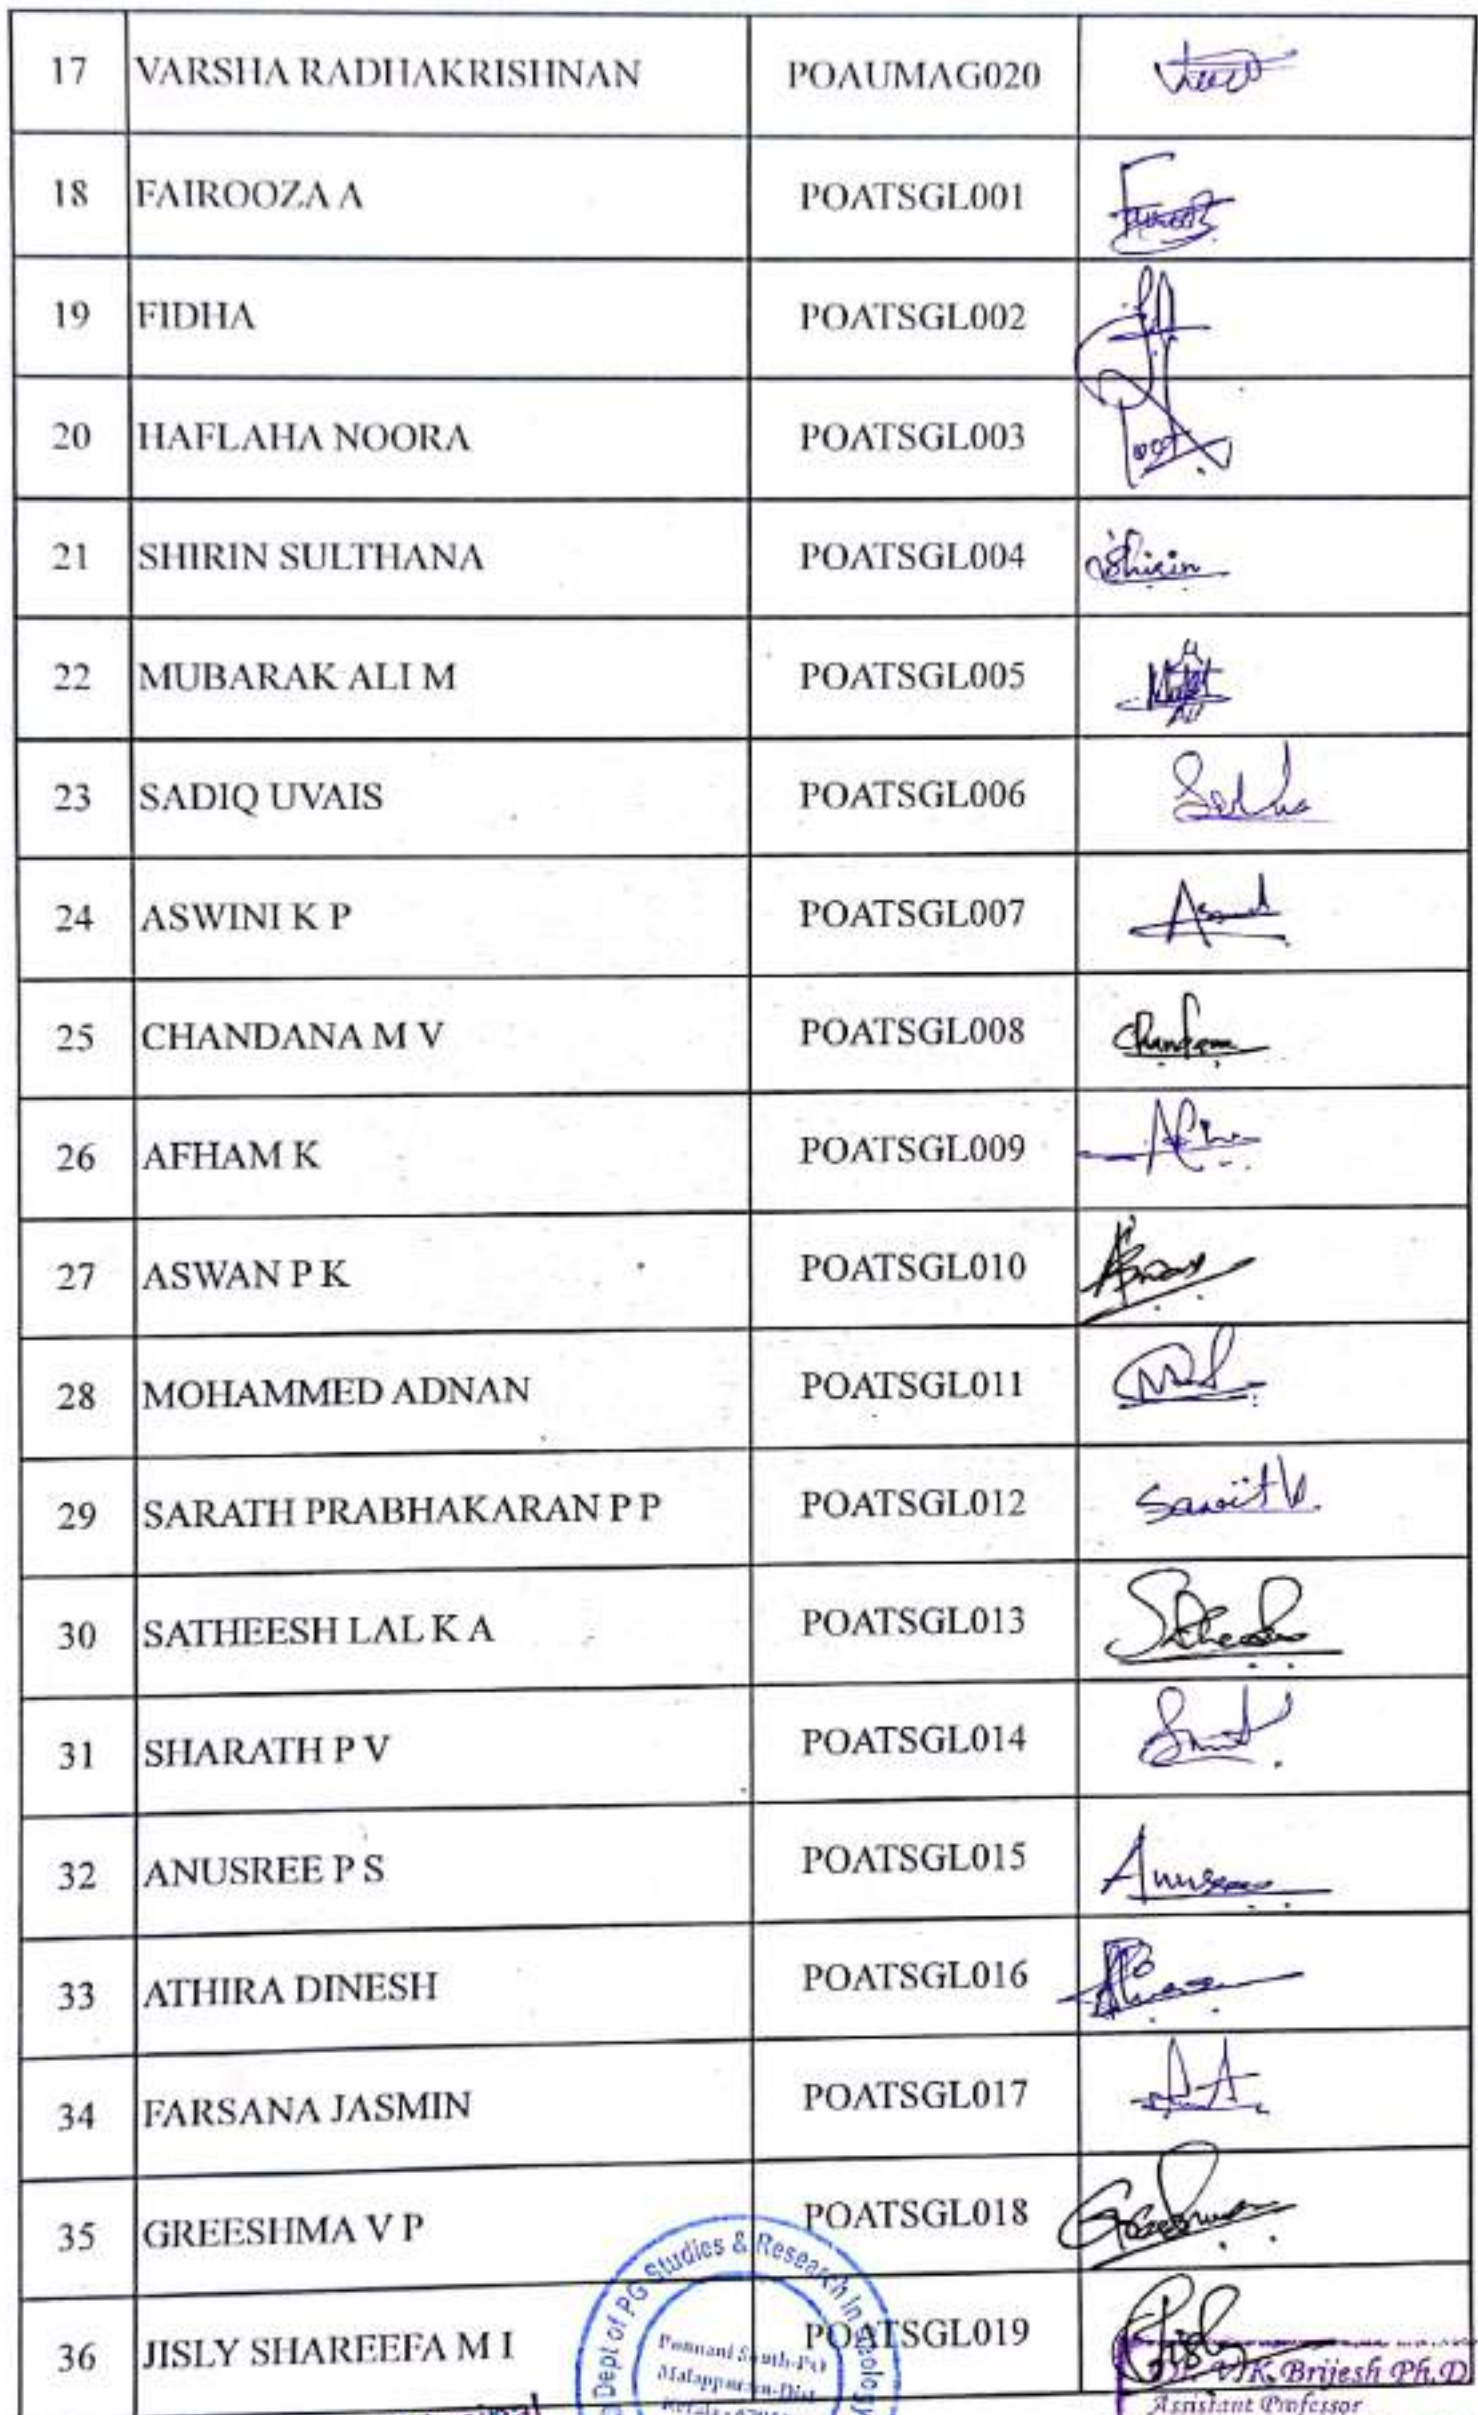 17 VARSHA RADHAKRISHNAN POAUMAG020
18 FAIROOZA A POATSGL001
19 FIDHA POATSGL002
20 HAFLAHA NOORA POATSGL003
21 SHIRIN SULTHANA POATSGL004 Shirin
22 MUBARAK ALI M POATSGL005
23 SADIQ UVAIS POATSGL006
24 ASWINI K P POATSGL007
25 CHANDANA M V POATSGL008 Chandana
26 AFHAM K POATSGL009
27 ASWAN P K POATSGL010
28 MOHAMMED ADNAN POATSGL011
29 SARATH PRABHAKARAN P P POATSGL012
30 SATHEESH LAL K A POATSGL013
31 SHARATH P V POATSGL014
32 ANUSREE P S POATSGL015
33 ATHIRA DINESH POATSGL016
34 FARSANA JASMIN POATSGL017
35 GREESHMA V P POATSGL018
36 JISLY SHAREEFA M I POATSGL019
Dept of PG Studies & Research In
Ponnani South-PO
Malappuram-Dist
Brijesh Ph.D
Assistant Professor